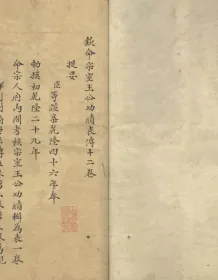 欽命宗室王公功績表傳十二卷
提要
臣等謹案乾隆四十六年奉
勅撰初乾隆二十九年
命宗人府內閣考核宗室王公功績輯為表一卷